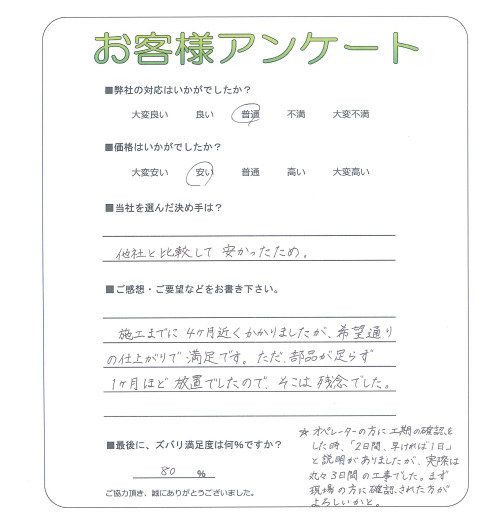 お客様アンケート
■弊社の対応はいかがでしたか？
大変良い 良い 普通 不満 大変不満
■価格はいかがでしたか？
大変安い 安い 普通 高い 大変高い
■当社を選んだ決め手は？
他社と比較して安かったため。
■ご感想・ご要望などをお書き下さい。
施工までに4ヶ月近くかかりましたが、希望通り
の仕上がりで満足です。ただ、部品が足らず
1ヶ月ほど放置でしたので、そこは残念でした。
■最後に、ズバリ満足度は何%ですか？
80 %
ご協力頂き、誠にありがとうございました。
★オペレーターの方に工期の確認を
した時、「2日間、早ければ1日」
と説明がありましたが、実際は
丸々3日間の工事でした。まず
現場の方に確認された方が
よろしいかと。